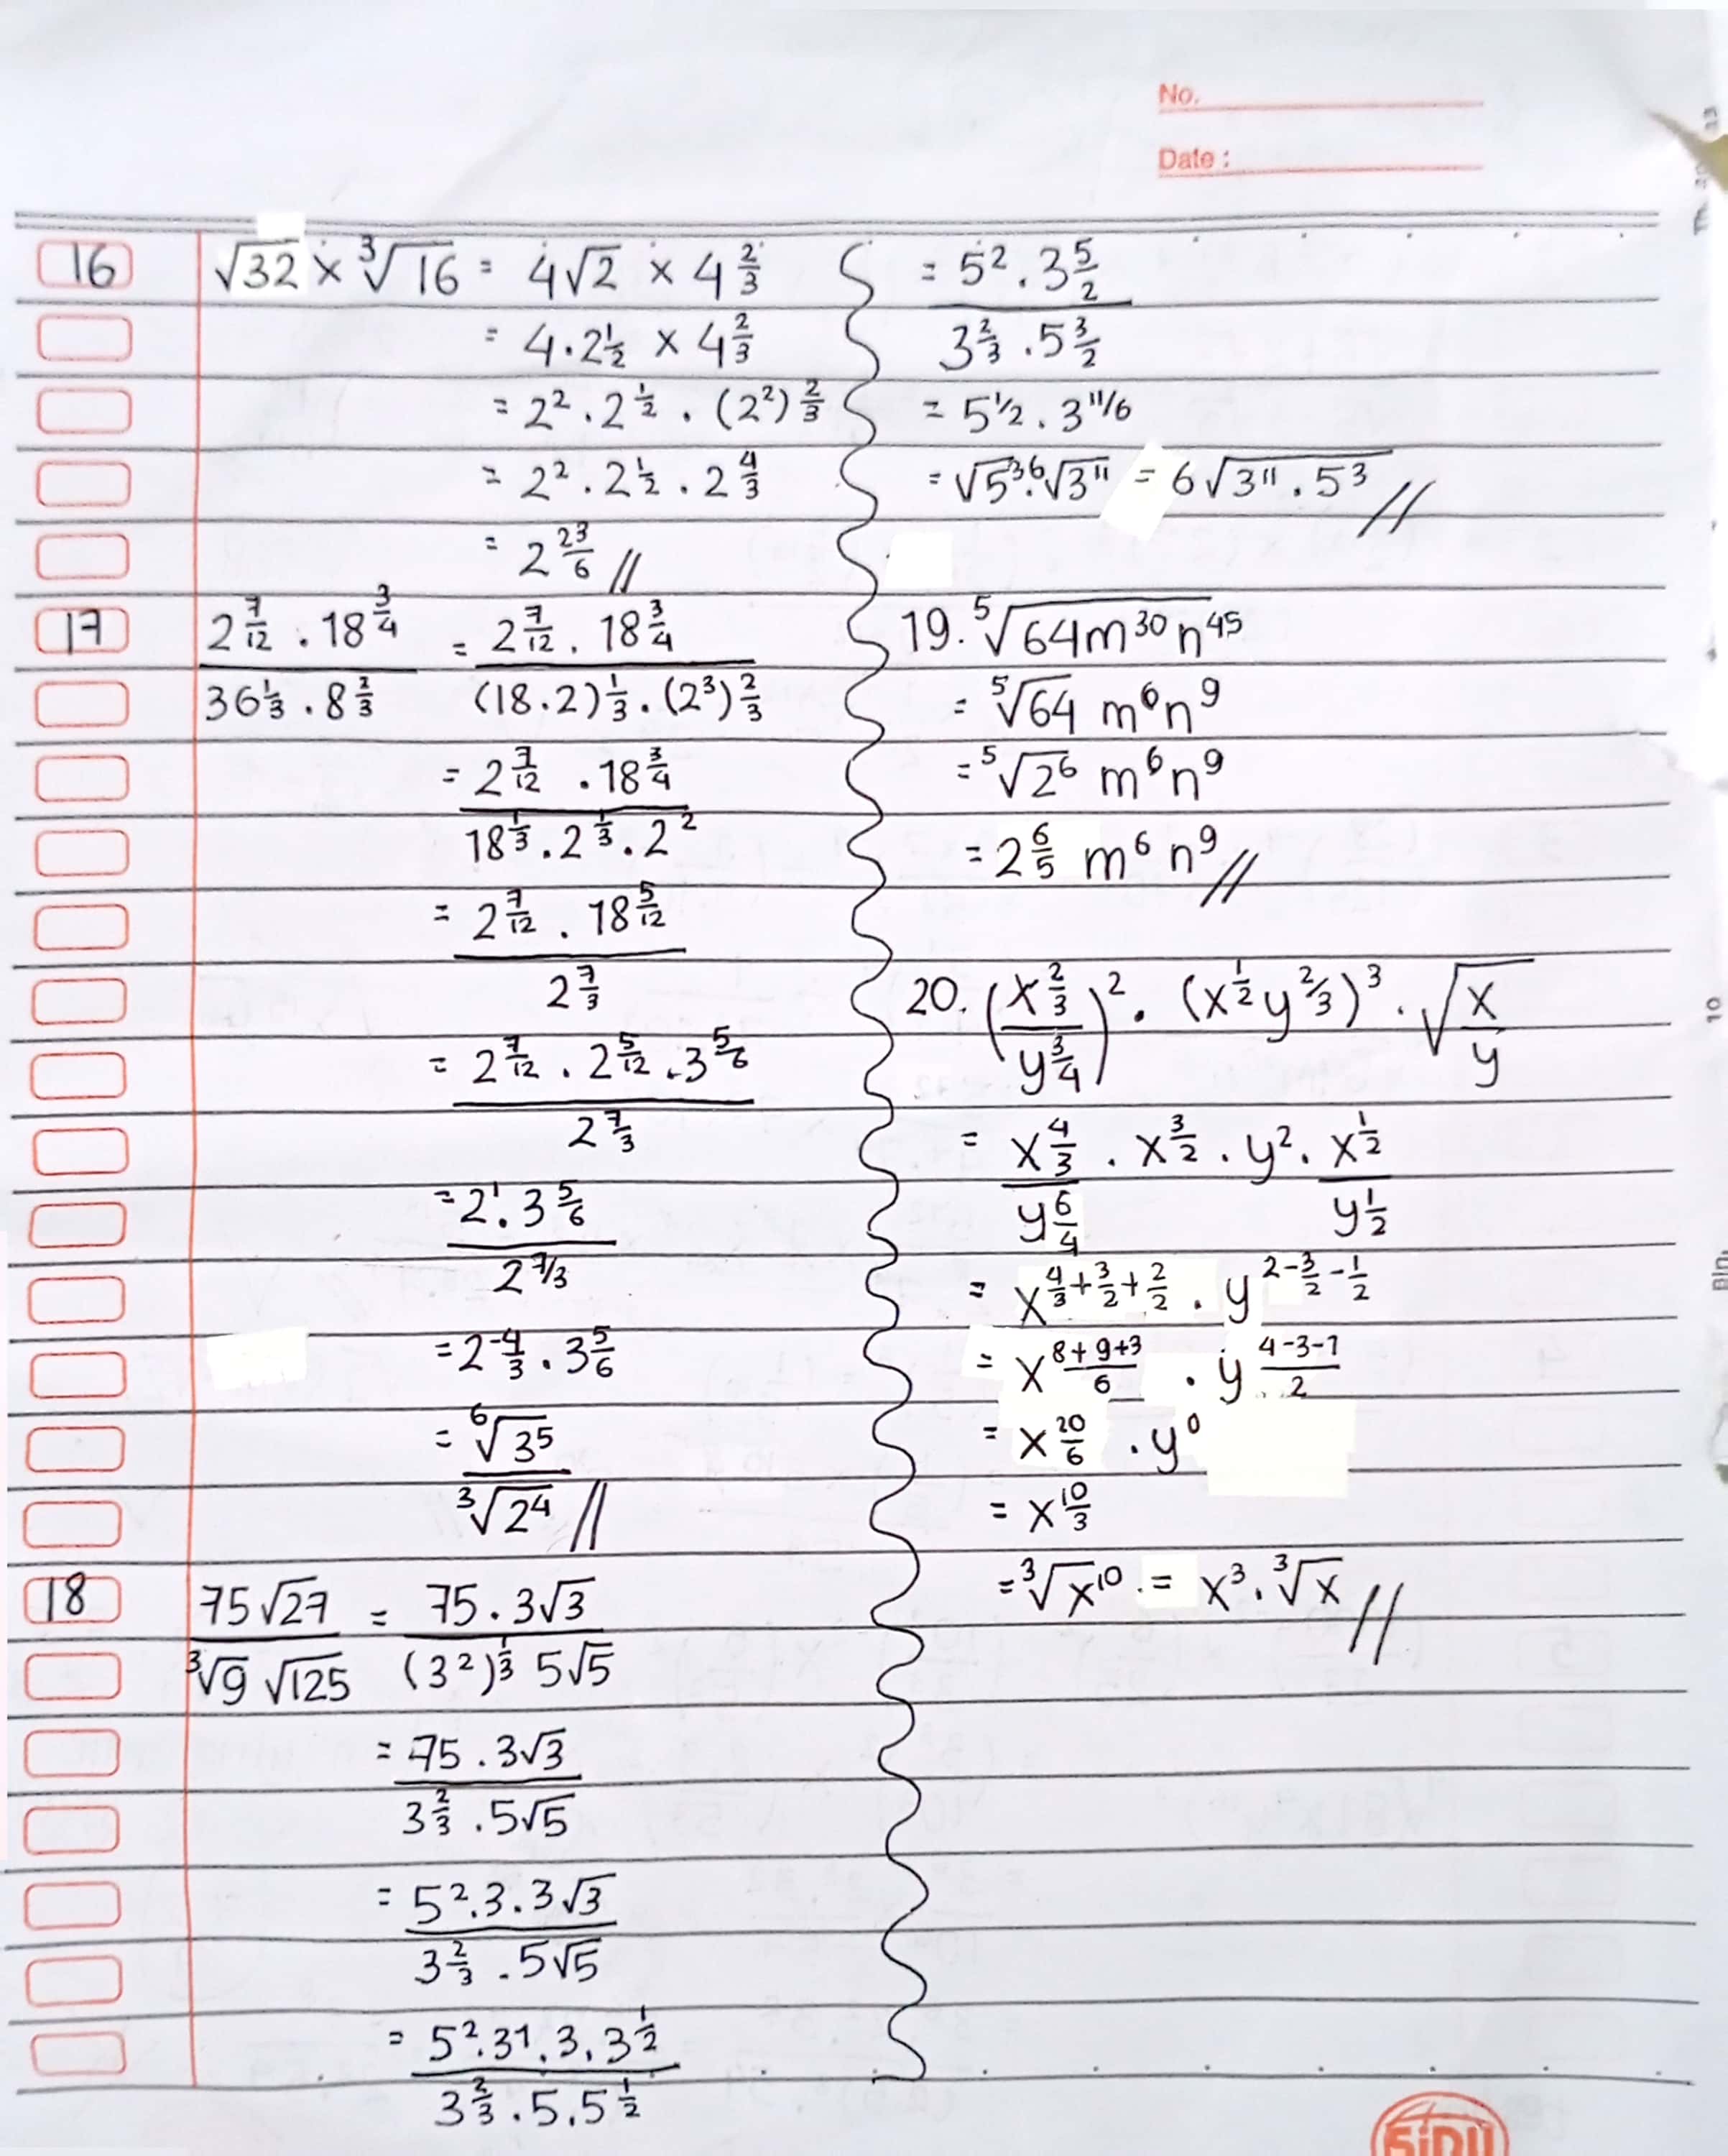 No.
Date :
16 √32 × ³√16 = 4√2 × 4^(2/3)
= 4 · 2^(1/2) × 4^(2/3)
= 2² · 2^(1/2) · (2²)^(2/3)
= 2² · 2^(1/2) · 2^(4/3)
= 2^(23/6) //
17 (2^(7/12) · 18^(3/4)) / (36^(1/3) · 8^(2/3)) = (2^(7/12) · 18^(3/4)) / ((18·2)^(1/3) · (2³)^(2/3))
= (2^(7/12) · 18^(3/4)) / (18^(1/3) · 2^(1/3) · 2²)
= (2^(7/12) · 18^(5/12)) / 2^(7/3)
= (2^(7/12) · 2^(5/12) · 3^(5/6)) / 2^(7/3)
= (2¹ · 3^(5/6)) / 2^(7/3)
= 2^(-4/3) · 3^(5/6)
= ⁶√3⁵ / ³√2⁴ //
18 75√27 / (³√9 √125) = (75 · 3√3) / ((3²)^(1/3) 5√5)
= (75 · 3√3) / (3^(2/3) · 5√5)
= (5² · 3 · 3√3) / (3^(2/3) · 5√5)
= (5² · 3¹ · 3 · 3^(1/2)) / (3^(2/3) · 5 · 5^(1/2))
= (5² · 3^(5/2)) / (3^(2/3) · 5^(3/2))
= 5^(1/2) · 3^(11/6)
= √5³ · ⁶√3¹¹ = 6√(3¹¹ · 5³) //
19. ⁵√(64m³⁰n⁴⁵)
= ⁵√64 m⁶n⁹
= ⁵√2⁶ m⁶n⁹
= 2^(6/5) m⁶n⁹ //
20. (x^(2/3) / y^(3/4))² · (x^(1/2) y^(2/3))³ · √(x/y)
= x^(4/3) / y^(6/4) · x^(3/2) · y² · x^(1/2) / y^(1/2)
= x^(4/3 + 3/2 + 2/2) · y^(2 - 3/2 - 1/2)
= x^((8+9+3)/6) · y^((4-3-1)/2)
= x^(20/6) · y⁰
= x^(10/3)
= ³√x¹⁰ = x³ · ³√x //
SIDU